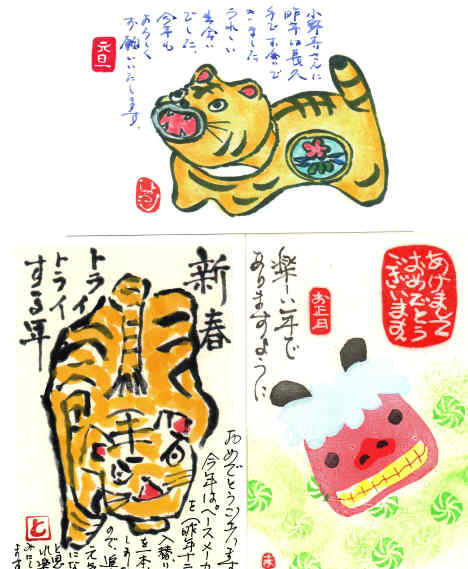 小野寺さんに
昨年は長久
手でお会いで
きました
うれしい
出会い
でした。
今年も
よろしく
お願いいたします。
元旦
新春
トライ
トライ
する年
おめでとうございます
今年はペースメーカ
を(昨年十二
入替
を一本
ので、
と思
あけまして
おめでとう
ございます
お正月
楽しい年で
ありますように